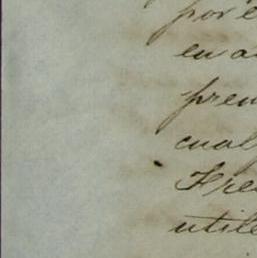 por e
en a
pren
cual
Fre
utile